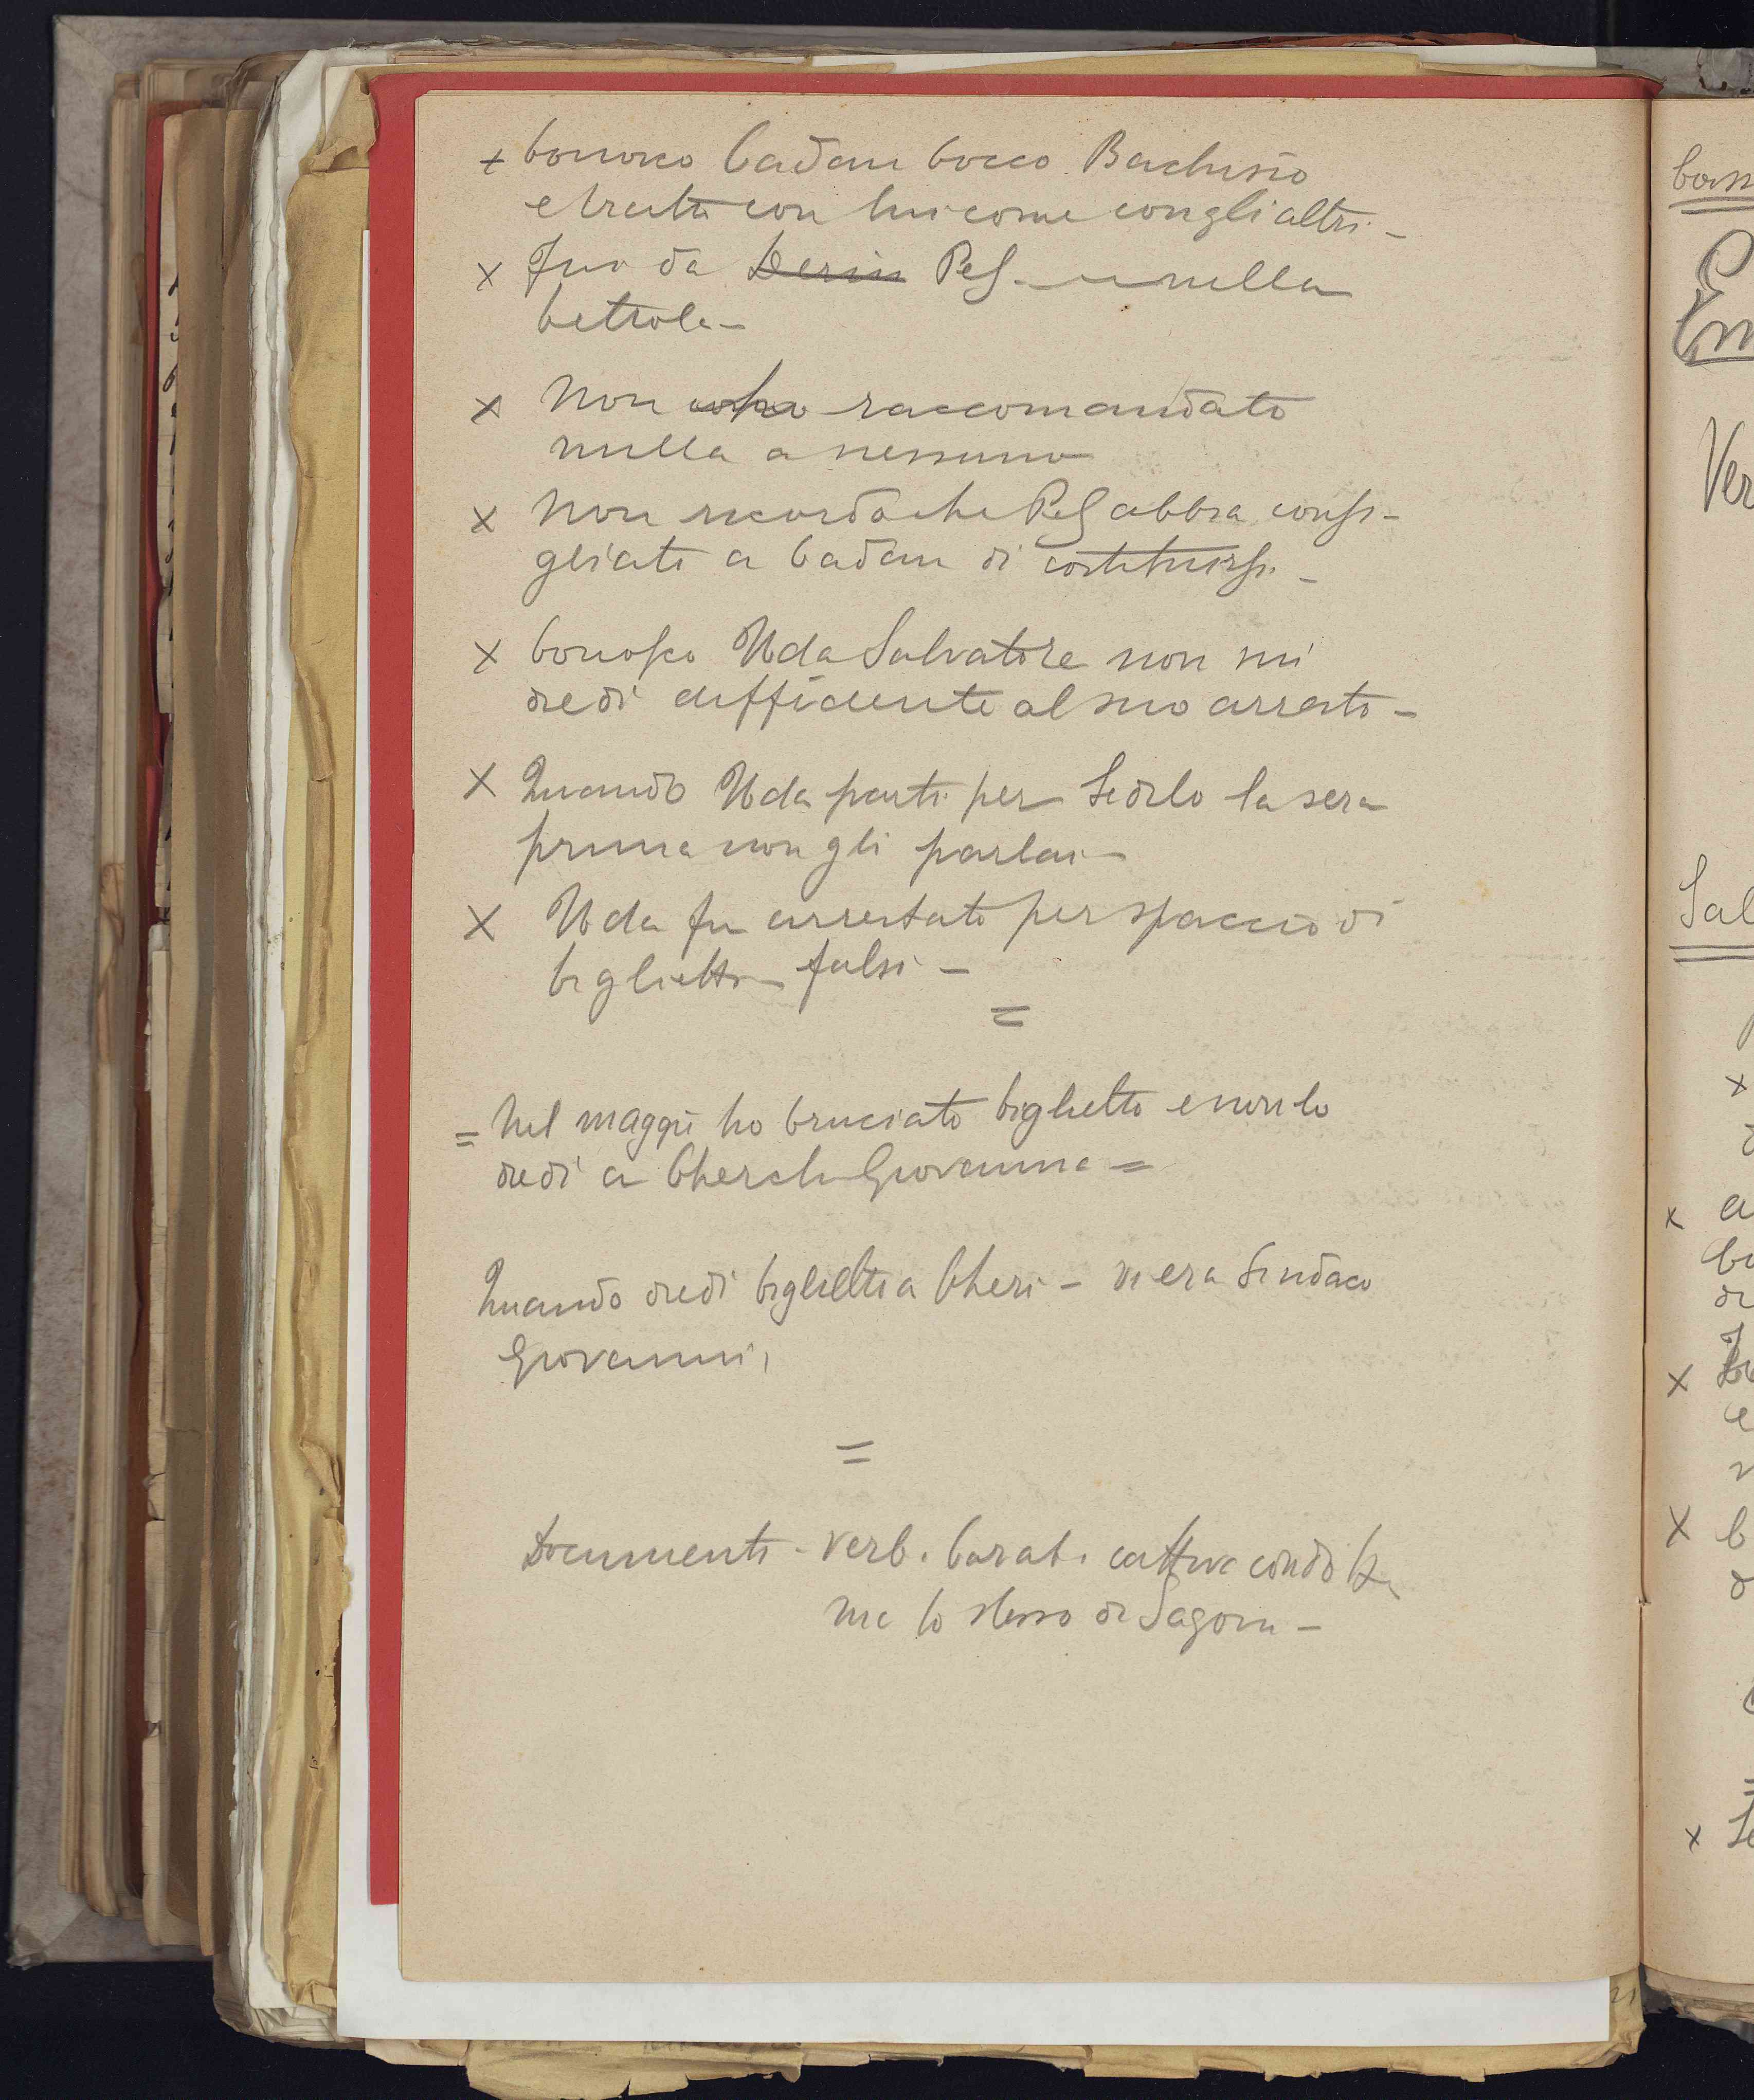 + Conosco Cadau Cocco Bachisio
e trattai con lui come con gli altri -
x Fui da Pes - nella
bettola -
x Non ho raccomandato
nulla a nessuno
x Non ricorda che Pes abbia consi-
gliato a Cadau di costituirsi -
x Conosco Uda Salvatore non mi
diedi al suo arresto -
x Quando Uda parti per Sedilo la sera
prima non gli parlai -
x Uda fu arrestato per spaccio di
biglietti falsi -
=
= Nel maggio ho bruciato biglietto e non lo
diedi a Giovanna =
Quando diedi biglietti a Cheri - vi era Sindaco
Giovanni,
=
Documenti - Verb. Carab. cattive
me lo stesso di
Cass
Em
Ver
Sal
x
x a
x
x
x